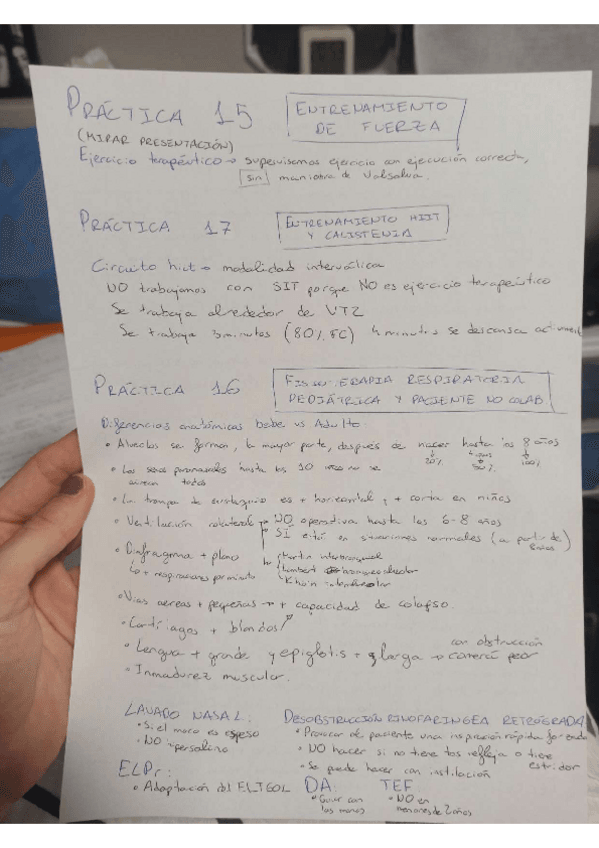 PRÁCTICA 15 ENTRENAMIENTO DE FUERZA
(MIRAR PRESENTACIÓN)
Ejercicio terapéutico → supervisamos ejercicio con ejecución correcta,
sin maniobra de Valsalva.
PRÁCTICA 17 ENTRENAMIENTO HIIT Y CALISTENIA
Circuito hiit → modalidad interválica
NO trabajamos con SIT porque NO es ejercicio terapéutico
Se trabaja alrededor de VT2
Se trabaja 3 minutos (80% FC) 4 minutos se descansa
PRÁCTICA 16 FISIOTERAPIA RESPIRATORIA PEDIÁTRICA Y PACIENTE NO COLAB
Diferencias anatómicas bebe vs Adulto
• Alveolos se forman, la mayor parte, después de nacer hasta los 8 años
20% 50% 100%
• Los senos paranasales hasta los 10 no se
airean todos
• La trompa de eustaquio es + horizontal y + corta en niños
• Ventilación colateral → NO operativa hasta los 6-8 años
SÍ está en situaciones normales (a partir de)
• Diafragma + plano
↳ + respiraciones por minuto
Martin interbronquial
Lambert
Khon interalveolar
• Vías aereas + pequeñas → + capacidad de colapso
• Cartílagos + blandos
• Lengua + grande y epiglotis + larga → con obstrucción peor
• Inmadurez muscular.
LAVADO NASAL:
• Si el moco es espeso
• NO
DESOBSTRUCCIÓN RINOFARINGEA RETRÓGRADA
• Provocar al paciente una inspiración rápida forzada
• NO hacer si no tiene tos refleja o tiene estridor
• Se puede hacer con instilación
ELPr:
• Adaptación del ELTGOL
DA
• Guiar con las manos
TEF
• NO en menores de 2 años